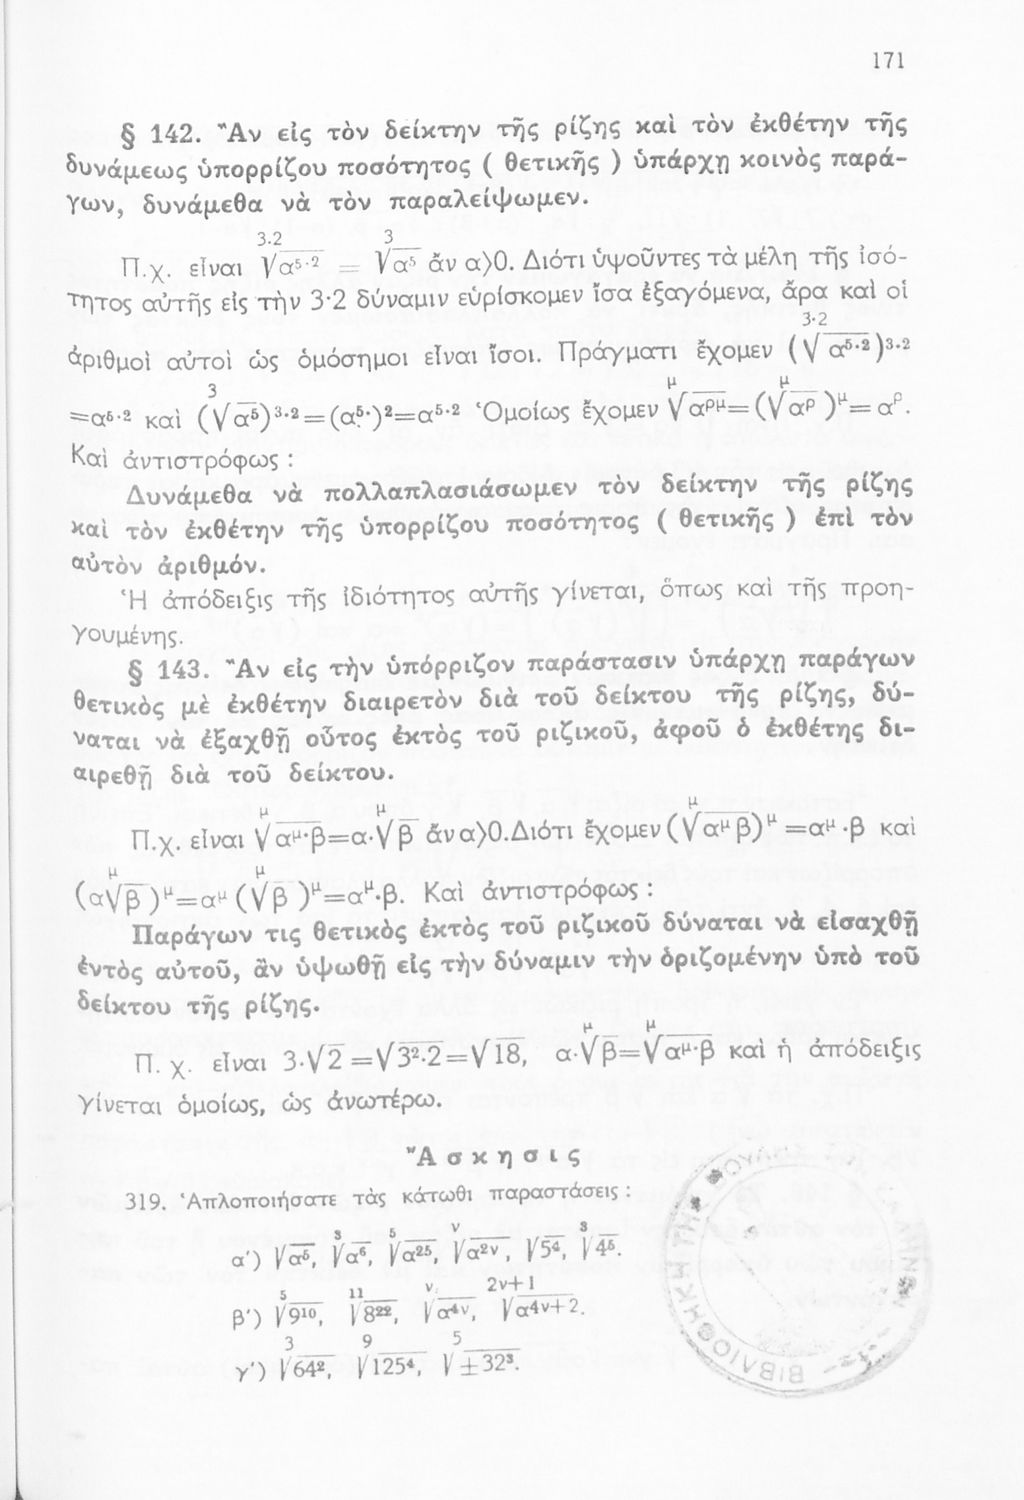 171
§ 142. Ἂν εἰς τὸν δείκτην τῆς ρίζης καὶ τὸν ἐκθέτην τῆς
δυνάμεως ὑπορρίζου ποσότητος ( θετικῆς ) ὑπάρχῃ κοινὸς παρά-
γων, δυνάμεθα νὰ τὸν παραλείψωμεν.
Π.χ. εἶναι ³·²√α⁵·² = ³√α⁵ ἄν α⟩0. Διότι ὑψοῦντες τὰ μέλη τῆς ἰσό-
τητος αὐτῆς εἰς τὴν 3·2 δύναμιν εὑρίσκομεν ἴσα ἐξαγόμενα, ἄρα καὶ οἱ
ἀριθμοὶ αὐτοὶ ὡς ὁμόσημοι εἶναι ἴσοι. Πράγματι ἔχομεν (³·²√α⁵·²)³·²
=α⁵·² καὶ (³√α⁵)³·²=(α⁵·)²=α⁵·² Ὁμοίως ἔχομεν ᵘ√αᵖᵘ=(ᵘ√αᵖ)ᵘ=αᵖ.
Καὶ ἀντιστρόφως :
Δυνάμεθα νὰ πολλαπλασιάσωμεν τὸν δείκτην τῆς ρίζης
καὶ τὸν ἐκθέτην τῆς ὑπορρίζου ποσότητος ( θετικῆς ) ἐπὶ τὸν
αὐτὸν ἀριθμόν.
Ἡ ἀπόδειξις τῆς ἰδιότητος αὐτῆς γίνεται, ὅπως καὶ τῆς προη-
γουμένης.
§ 143. Ἂν εἰς τὴν ὑπόρριζον παράστασιν ὑπάρχῃ παράγων
θετικὸς μὲ ἐκθέτην διαιρετὸν διὰ τοῦ δείκτου τῆς ρίζης, δύ-
ναται νὰ ἐξαχθῇ οὗτος ἐκτὸς τοῦ ριζικοῦ, ἀφοῦ ὁ ἐκθέτης δι-
αιρεθῇ διὰ τοῦ δείκτου.
Π.χ. εἶναι ᵘ√αᵘ·β=α·ᵘ√β ἄν α⟩0. Διότι ἔχομεν (ᵘ√αᵘβ)ᵘ=αᵘ·β καὶ
(αᵘ√β)ᵘ=αᵘ(ᵘ√β)ᵘ=αᵘ·β. Καὶ ἀντιστρόφως :
Παράγων τις θετικὸς ἐκτὸς τοῦ ριζικοῦ δύναται νὰ εἰσαχθῇ
ἐντὸς αὐτοῦ, ἂν ὑψωθῇ εἰς τὴν δύναμιν τὴν ὁριζομένην ὑπὸ τοῦ
δείκτου τῆς ρίζης.
Π. χ. εἶναι 3·√2=√3²·2=√18, α·ᵘ√β=ᵘ√αᵘ·β καὶ ἡ ἀπόδειξις
γίνεται ὁμοίως, ὡς ἀνωτέρω.
Ἄσκησις
319. Ἁπλοποιήσατε τὰς κάτωθι παραστάσεις :
α') √α⁵, ³√α⁶, ⁵√α²⁵, ᵛ√α²ᵛ, √5⁴, ³√4⁵.
β') ⁵√9¹⁰, ¹¹√8²², ᵛ√α⁴ᵛ, ²ᵛ⁺¹√α4ν+2.
γ') ³√64², ⁹√125⁴, ⁵√±32³.